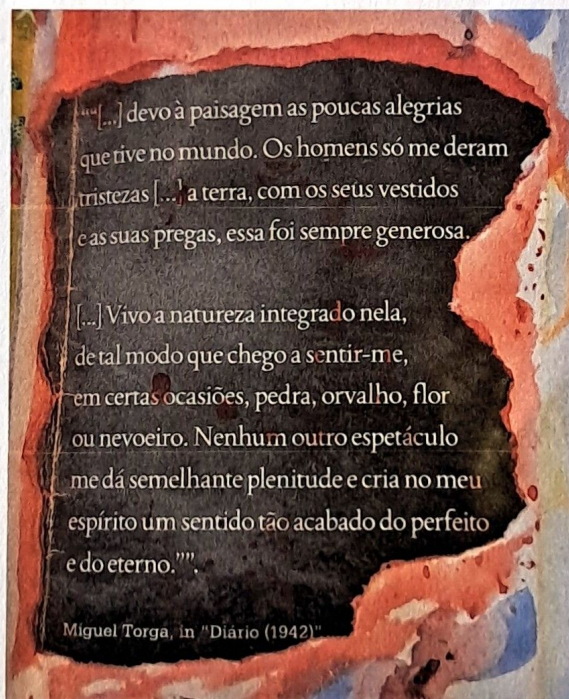 ""[...] devo à paisagem as poucas alegrias
que tive no mundo. Os homens só me deram
tristezas [...] a terra, com os seus vestidos
e as suas pregas, essa foi sempre generosa.
[...] Vivo a natureza integrado nela,
de tal modo que chego a sentir-me,
em certas ocasiões, pedra, orvalho, flor
ou nevoeiro. Nenhum outro espetáculo
me dá semelhante plenitude e cria no meu
espírito um sentido tão acabado do perfeito
e do eterno."".
Miguel Torga, in "Diário (1942)"